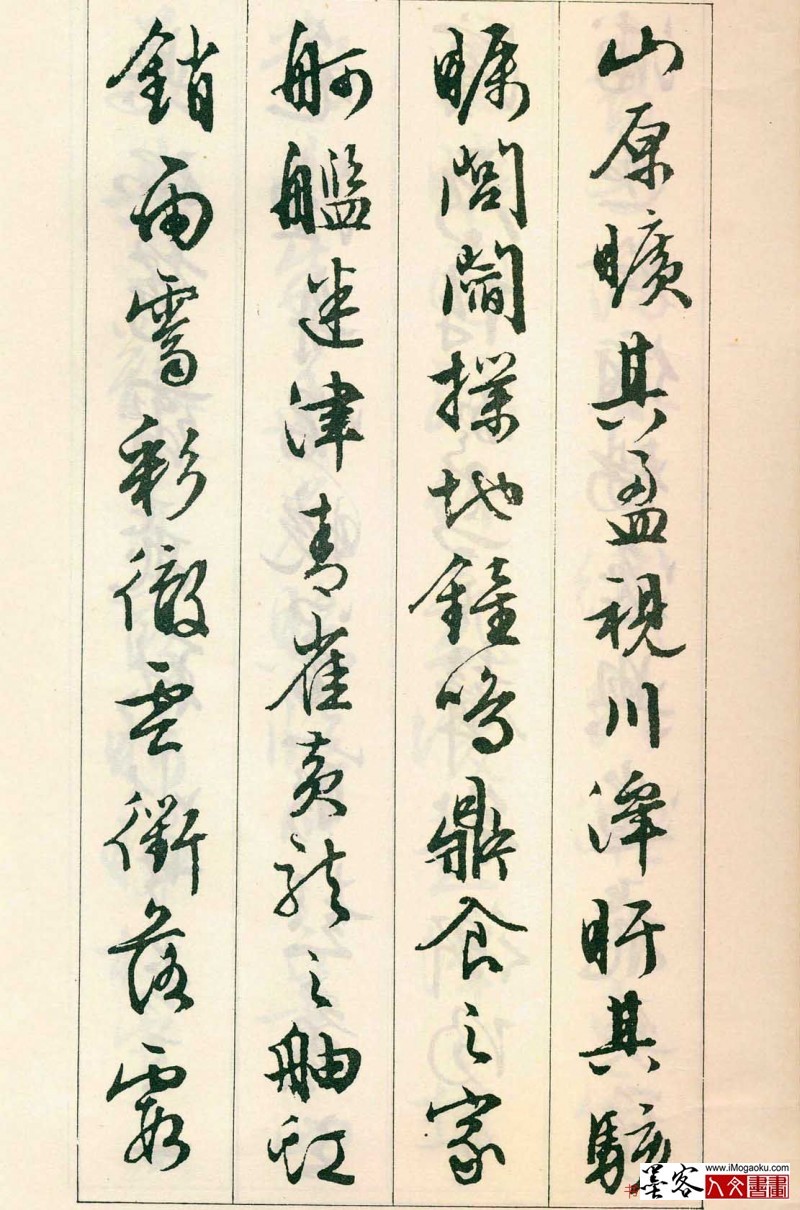 山原曠其盈視川澤盱其駭
矚閭閻撲地鐘鳴鼎食之家
舸艦迷津青雀黃龍之舳虹
銷雨霽彩徹雲衢落霞
www.iMogaoku.com
墨客人文書畫